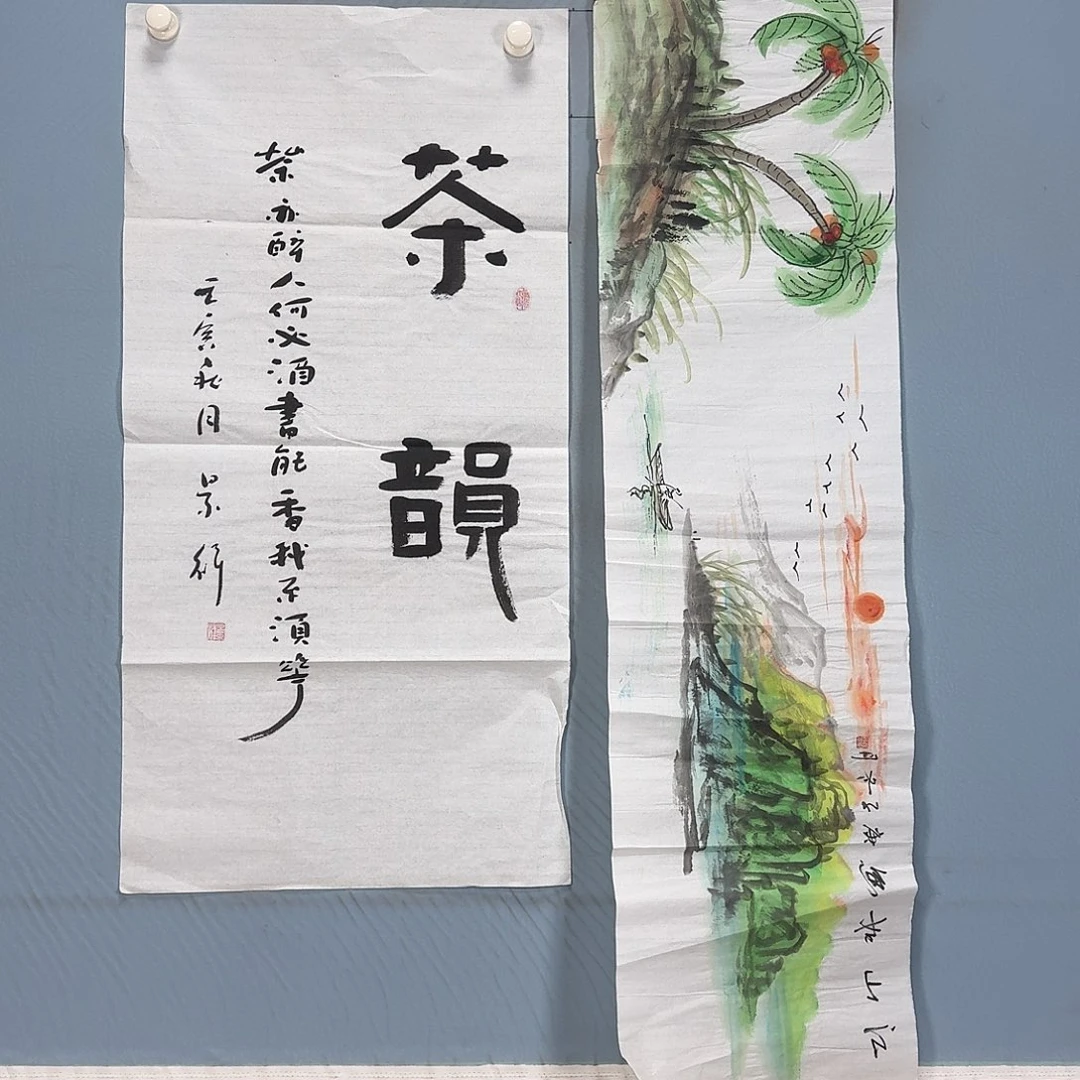 茶韻
茶亦醉人何必酒書能香我不須花
壬寅秋月 景行
江山如画 庚子 月